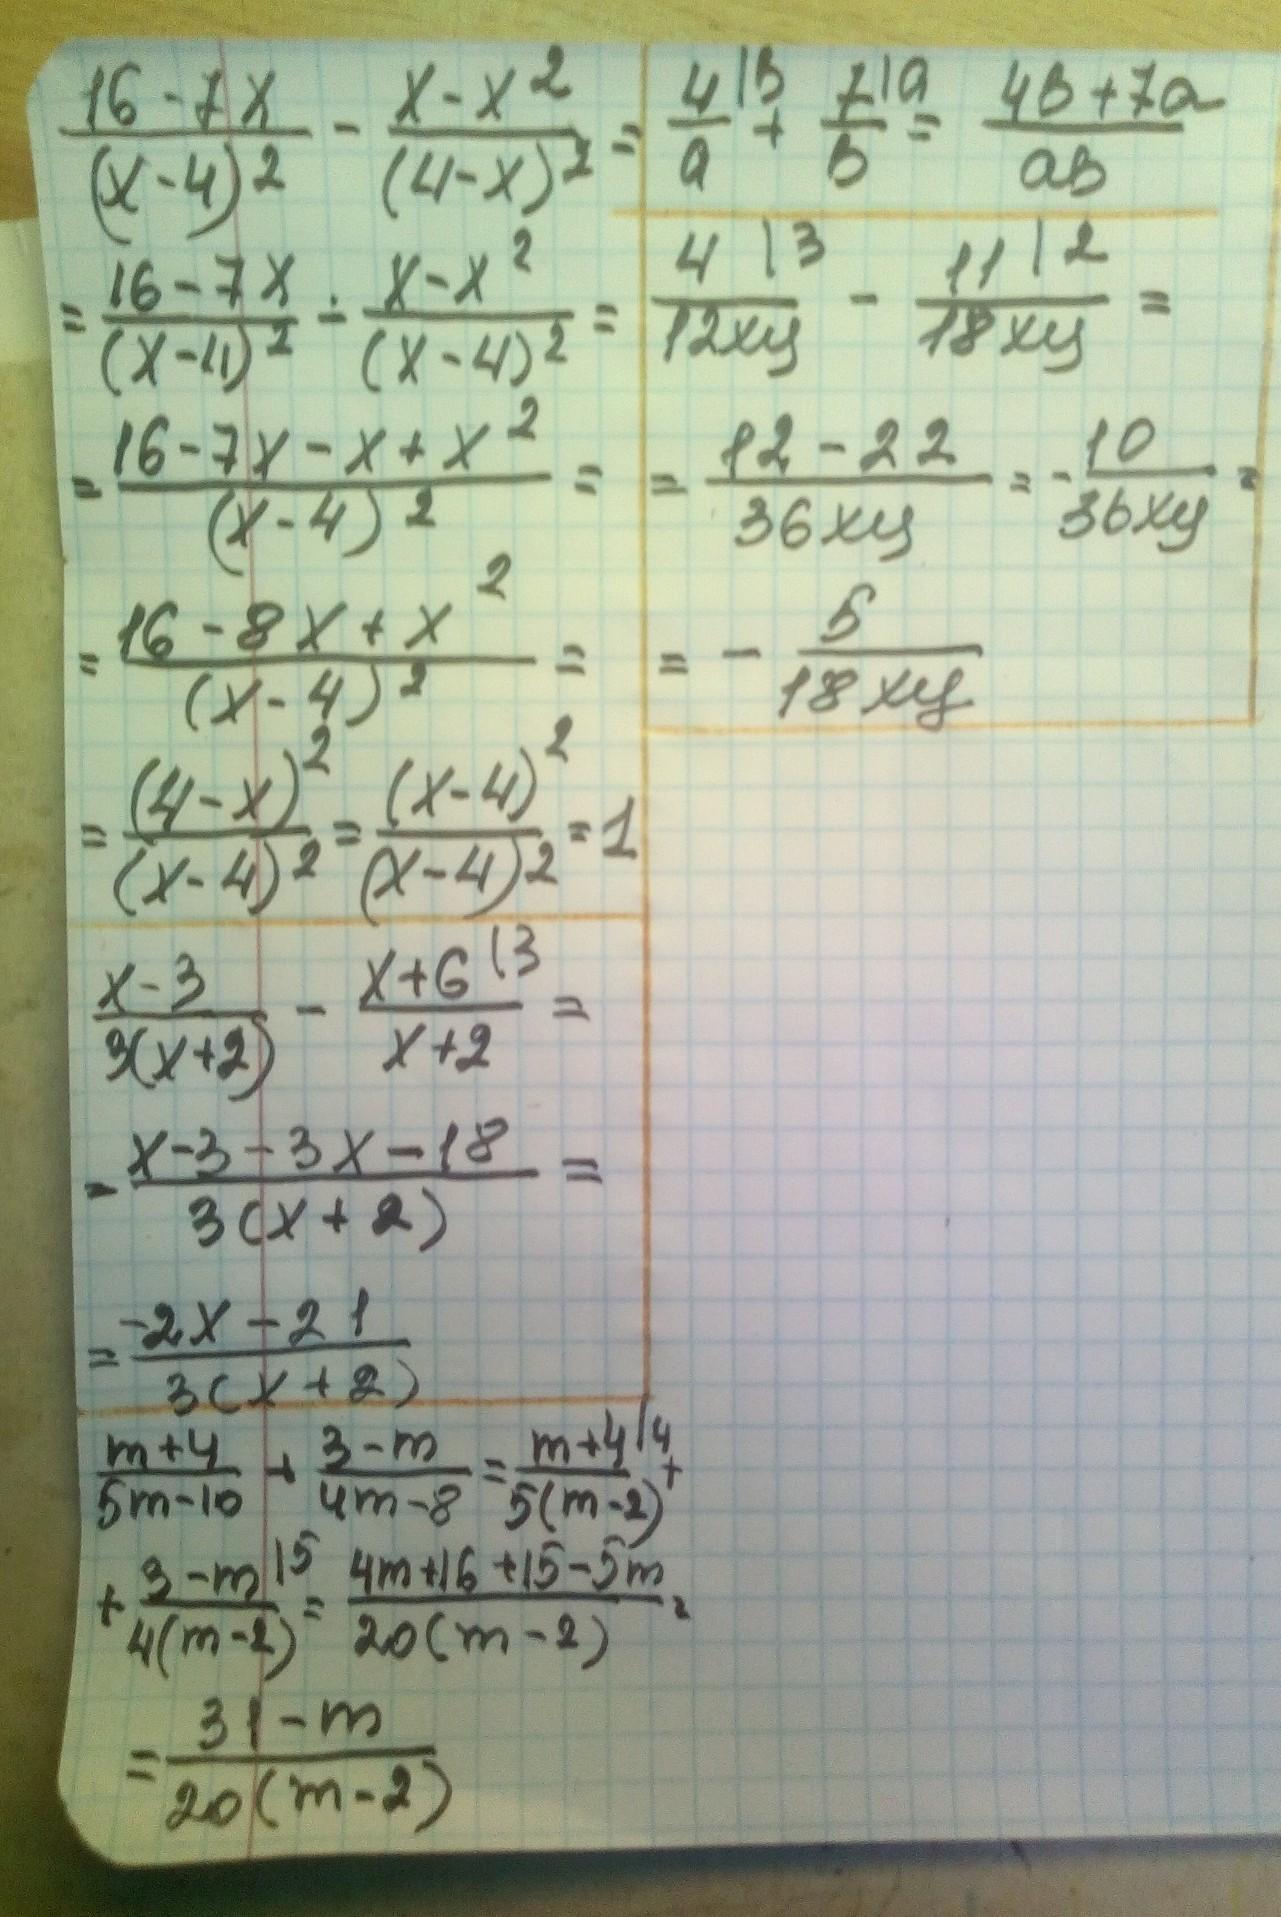 (16-7x)/(x-4)² - (x-x²)/(4-x)² =
= (16-7x)/(x-4)² - (x-x²)/(x-4)² =
= (16-7x-x+x²)/(x-4)² =
= (16-8x+x²)/(x-4)² =
= (4-x)²/(x-4)² = (x-4)²/(x-4)² = 1
(x-3)/(3(x+2)) - (x+6\3)/(x+2) =
= (x-3-3x-18)/(3(x+2)) =
= (-2x-21)/(3(x+2))
(m+4)/(5m-10) + (3-m)/(4m-8) = (m+4|4)/(5(m-2)) +
+ (3-m|5)/(4(m-2)) = (4m+16+15-5m)/(20(m-2)) =
= (31-m)/(20(m-2))
4|в/a + 7|a/в = (4в+7a)/(aв)
4|3/(12xy) - 11|2/(18xy) =
= (12-22)/(36xy) = -10/(36xy) =
= - 5/(18xy)